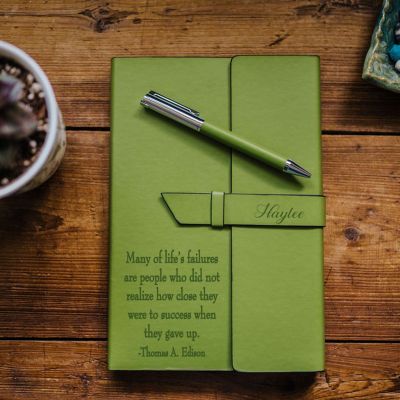 Haylee
Many of life's failures
are people who did not
realize how close they
were to success when
they gave up.
-Thomas A. Edison